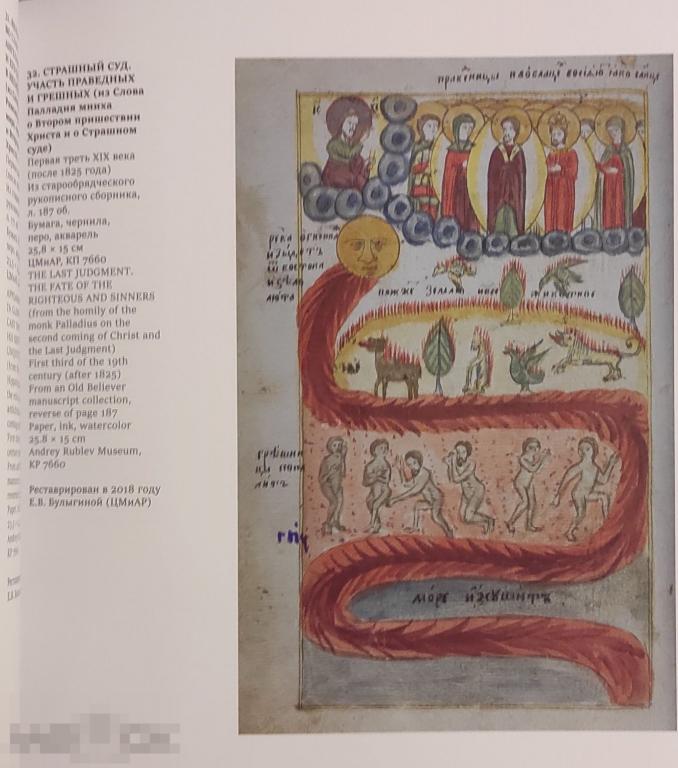 32. СТРАШНЫЙ СУД.
УЧАСТЬ ПРАВЕДНЫХ
И ГРЕШНЫХ (из Слова
Палладия мниха
о Втором пришествии
Христа и о Страшном
суде)
Первая треть XIX века
(после 1825 года)
Из старообрядческого
рукописного сборника,
л. 187 об.
Бумага, чернила,
перо, акварель
25,8 × 15 см
ЦМиАР, КП 7660
THE LAST JUDGMENT.
THE FATE OF THE
RIGHTEOUS AND SINNERS
(from the homily of the
monk Palladius on the
second coming of Christ and
the Last Judgment)
First third of the 19th
century (after 1825)
From an Old Believer
manuscript collection,
reverse of page 187
Paper, ink, watercolor
25.8 × 15 cm
Andrey Rublev Museum,
KP 7660
Реставрирован в 2018 году
Е.В. Булыгиной (ЦМиАР)
река
море